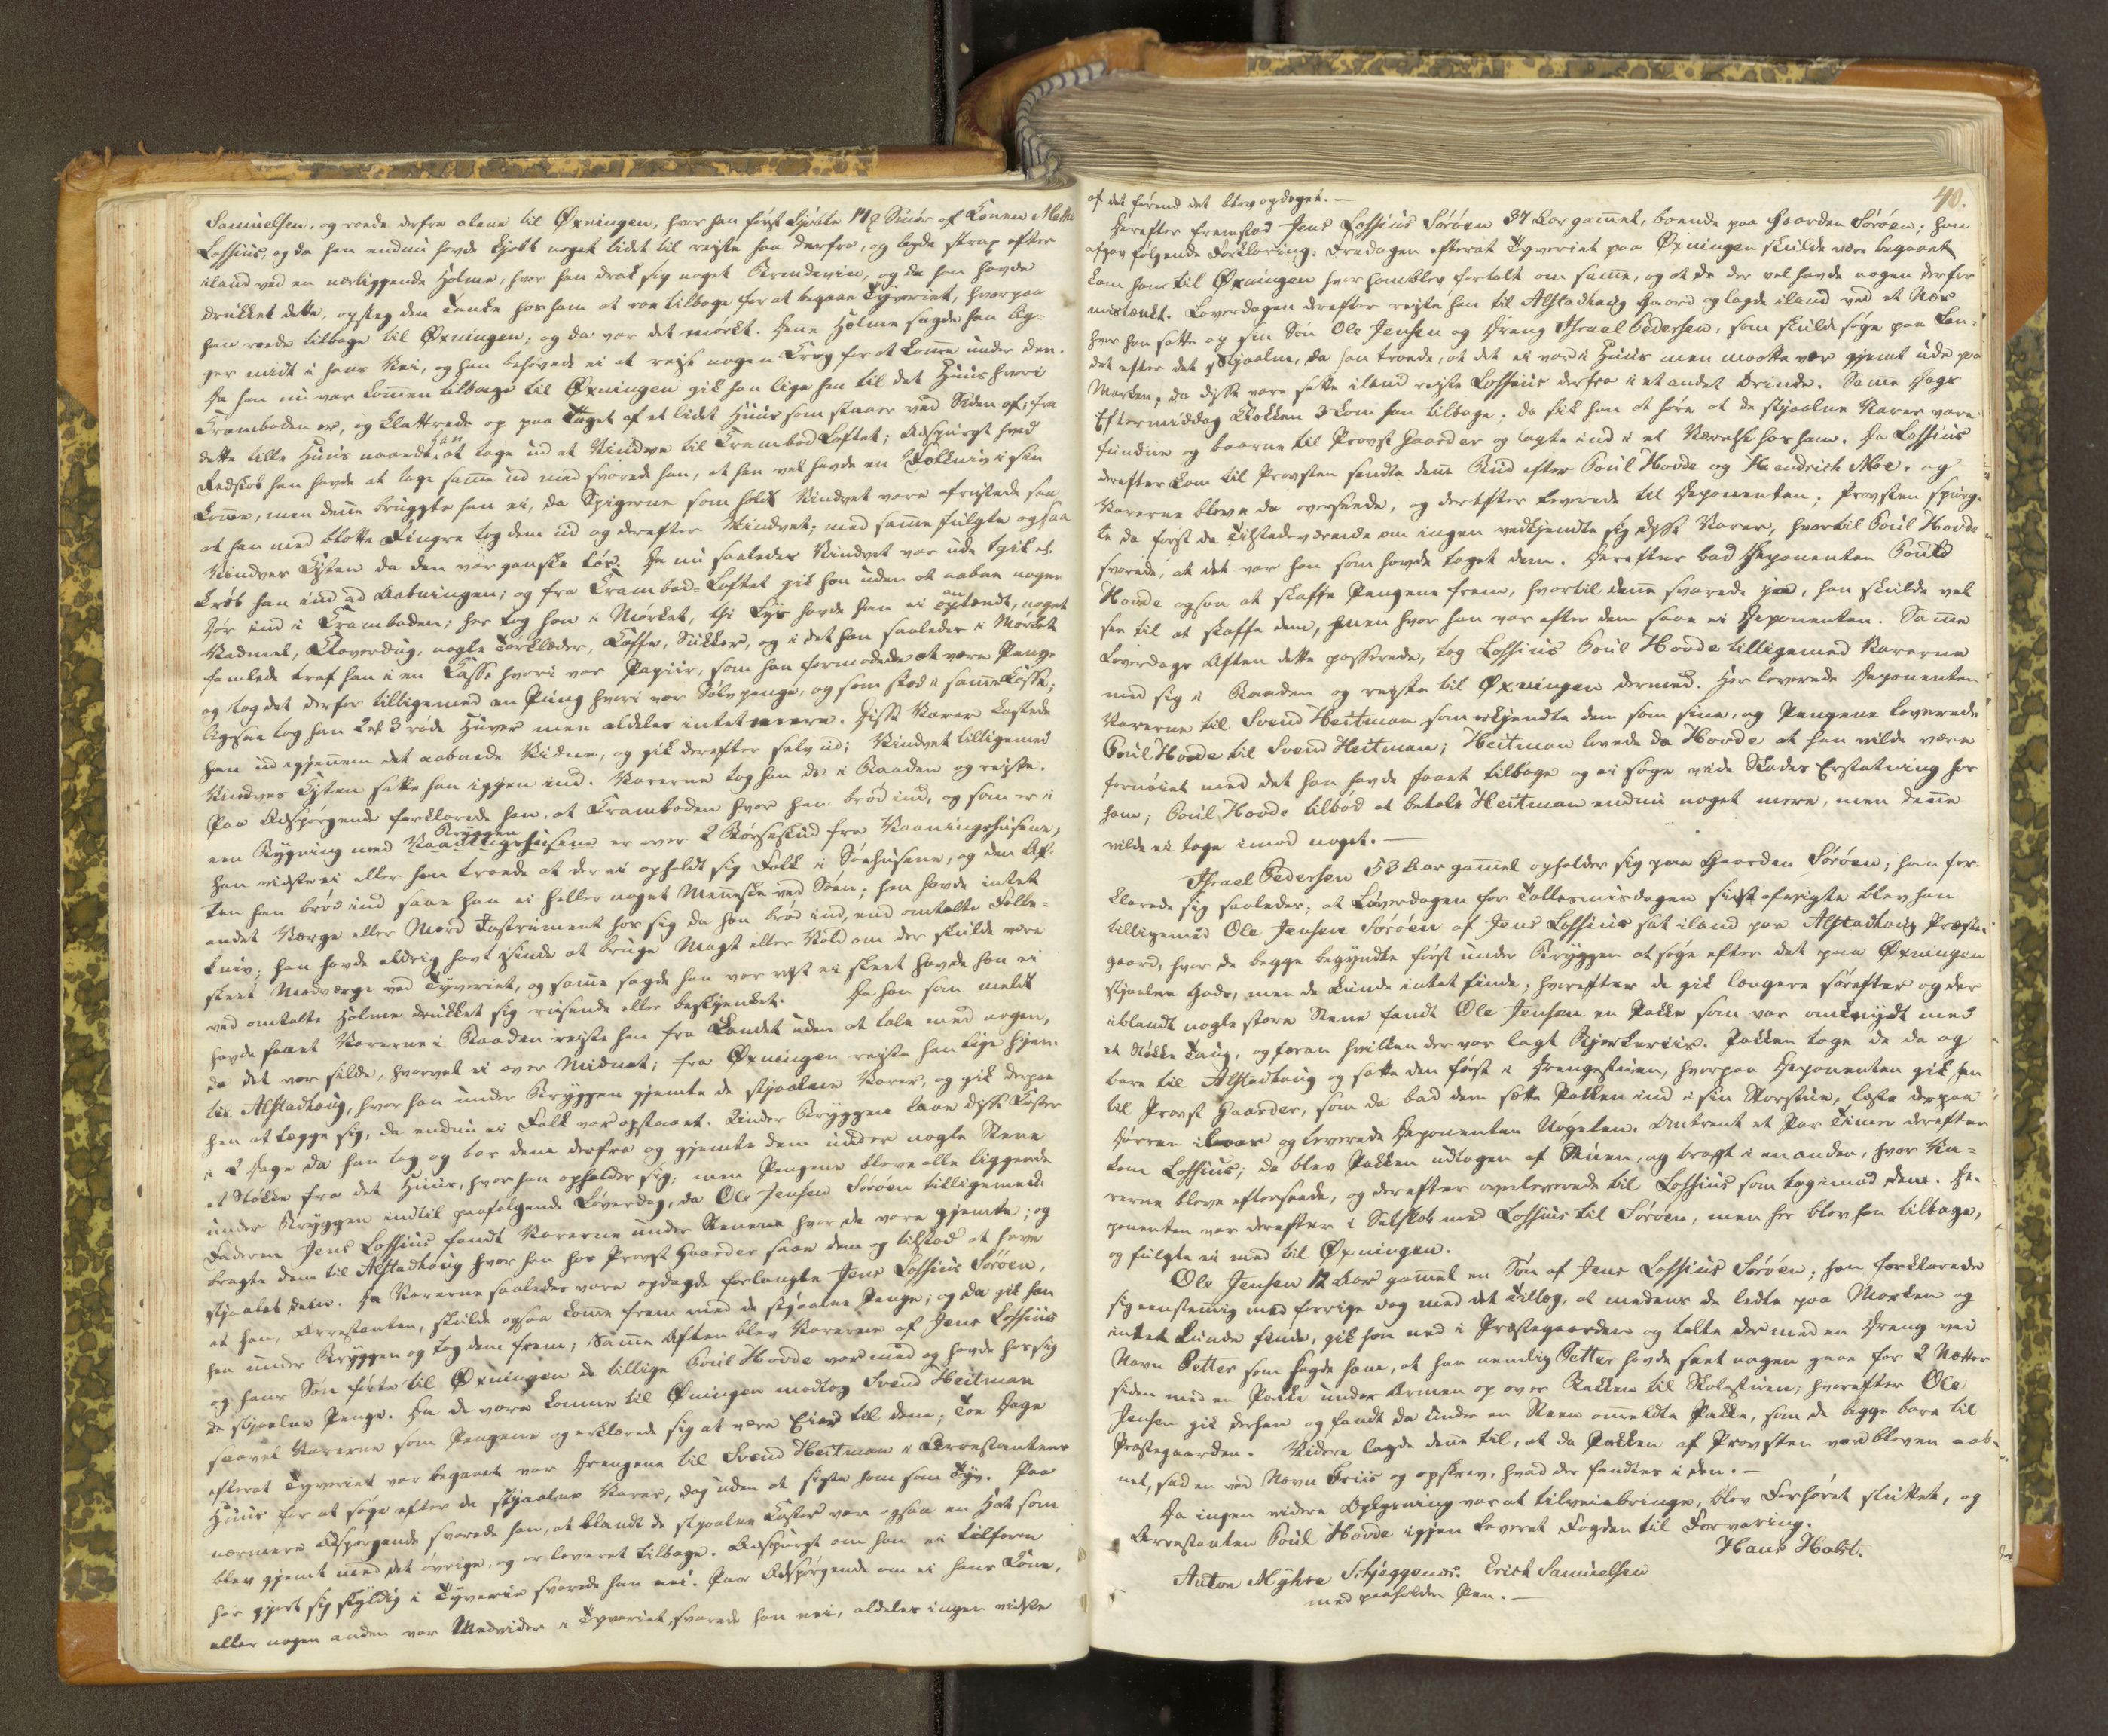 Samuelsen, og roede derfra alene til Øxningen, hvor han først kjøbte 1 ℔ Smør af Konen Mette
Lossius, og da han endnu havde kjøbt noget lidet til rejste han derfra, og lagde strax efter
iland ved en nærliggende Holme, hvor han drak sig noget Brændeviin, og da han havde
drukket dette, opsteg den Tanke hos ham at roe tilbage for at begaae Tyveriet, hvorpaa
han roede tilbage til Øxningen, og da var det mørkt. Denne Holme sagde han lig-
ger midt i hans Vei, og han behøvede ei at rejse nogen Krog for at komme under den.
Da han nu var kommen tilbage til Øxningen gik han lige hen til det Huus hvori
Kramboden er, og klattrede op paa Taget af et lidet Huus som staaer ved Siden af, fra
dette lille Huus naaede han at tage ud et Vindue til Krambod Loftet; Adspurgt hvad
Redskab han havde at tage samme ud med svarede han, at han vel havde en Follekniv i sin
Lomme, men denne bruggte han ei, da Spigerne som holdt Vinduet vare afrustede saa
at han med blotte Fingre tog dem ud og derefter Vinduet; med samme fulgte ogsaa
Vindues Listen da den var ganske løs. Da nu saaledes Vinduet var ude
krøb han ind ad Aabningen; og fra Krambod-Loftet gik han uden at aabne nogen
Dør ind i Kramboden; her tog han i Mørket, thi Lys havde han ei antændt, noget
Vadmel, Kloverdug, nogle Tørklæder, Kaffe, Sukker, og i det han saaledes i Mørket
famlede traf han i en Kasse hvori var Papiir, som han formodede at være Penge
og tog det derfor tilligemed en Pung hvori var Sølvpenge, og som stod i samme Kasse;
Ogsaa tog han 2 el 3 røde Huver men aldeles intet mere. Disse Varer kastede
han ud igjennem det aabnede Vidue, og gik derefter selv ud; Vinduet tilligemed
Vindues Listen satte han iggen ind. Varerne tog han da i Baaden og rejste.
Paa Adspørgende forklarede han, at Kramboden hvor han brød ind, og som er i
een Bygning med Bryggen er over 2 Børseskud fra Vaaningshusene,
han vidste ei eller han troede at der ei opholdt sig Folk i Søehusene, og den Af-
ten han brød ind saae han ei heller noget Menneske ved Søen; han havde intet
andet Værge eller Mord Instrument hos sig da han brød ind, end omtalte Folle-
kniv; han havde aldrig havt isinde at bruge Magt eller Vold om der skulde være
skeet Modværge ved Tyveriet, og samme sagde han var vist ei skeet havde han ei
ved omtalte Holme drukket sig rusende eller beskjenket. Da han som meldt
havde faaet Varerne i Baaden rejste han fra Landet uden at tale med nogen,
da det var silde, hvorvel ei over Midnat; fra Øxningen rejste han lige hjem
til Alstadhaug, hvor han under Bryggen gjemte de stjaalne Varer, og gik derpaa
hen at lægge sig, da endnu ei Folk var opstaaet. Under Bryggen laae disse Koster
i 2 Dage da han tog og bar dem derfra og gjemte dem under nogle Stene
et Støkke fra det Huus, hvor han opholder sig; men Pengene bleve alle liggende
under Bryggen indtil paafølgende Løverdag, da Ole Jensen Sørøen tilligemed
Faderen Jens Lossius fandt Varerne under Stenene hvor de vare gjemte; og
bragte dem til Alstadhaug hvor han hos Provst Gaarder saae dem og tilstod at have
stjaalet dem. Da Varerne saaledes vare opdagede forlangte Jens Lossius Sørøen,
at han, Arrestanten, skulde ogsaa komme frem med de stjaalne Penge; og da gik han
hen under Bryggen og tog dem frem; Samme Aften blev Varerne af Jens Lossius
og hans Søn førte til Øxningen da tillige Poul Hovde var med og havde hos sig
de stjaalne Penge. Da de vare komne til Øxningen modtog Svend Heitman
saavel Varerne som Pengene og erklærede sig at være Eier til dem; Toe Dage
efterat Tyveriet var begaaet var Drengene til Svend Heitman i Arrestantens
Huus for at søge efter de stjaalne Varer, dog uden at sigte ham som Tyv. Paa
nærmere Adspørgende svarede han, at blandt de stjaalne Koster var ogsaa en Hat som
blev gjemt med det øvrige, og er leveret tilbage. Adspurgt om han ei tilforn
har gjort sig skyldig i Tyverie svarede han nei. Paa Adspørgende om ei hans Kone,
eller nogen anden var Medvider i Tyveriet svarede han nei, aldeles ingen vidste
40.
af det førend det blev opdaget.—
Derefter fremstod Jens Lossius Sørøen 37 Aar gammel, boende paa Gaarden Sørøen; han
afgav følgende Forklaring: Fredagen efterat Tyveriet paa Øxningen skulde være begaaet
kom han til Øxningen hvor ham blev fortalt om samme, og at de der vel havde nogen derfor
mistænkt. Løverdagen derefter rejste han til Alstadhaug Gaard og lagde iland ved et Næs
hvor han satte op sin Søn Ole Jensen og Dreng Israel Pedersen, som skulde søge paa Lan-
det efter det stjaalne, da han troede, at det ei var i Huus men maatte være gjemt ude paa
Marken; da disse vare satte iland rejste Lossius derfra i et andet Ærinde. Samme Dags
Eftermiddag Klokken 3 kom han tilbage; da fik han at høre at de stjaalne Varer vare
fundne og baarne til Provst Gaarder og lagte ind i et Værelse hos ham. Da Lossius
derefter kom til Provsten sendte denne Bud efter Poul Hovde og Hendrich Moe, og
Varerne bleve da overseede, og derefter leverede til Deponenten; Provsten spurg-
te da først de Tilstedeværende om ingen vedkjendte sig disse Varer, hvortil Poul Hovde
svarede, at det var han som havde taget dem. Derefter bad Deponenten Poul
Hovde ogsaa at skaffe Pengene frem, hvortil denne svarede joe, han skulde vel
see til at skaffe dem, men hvor han var efter dem saae ei Deponenten. Samme
Løverdags Aften dette passerede, tog Lossius Poul Hovde tilligemed Varerne
med sig i Baaden og rejste til Øxningen dermed. Her leverede Deponenten
Varerne til Svend Heitman som erkjendte dem som sine, og Pengene leverede
Poul Hovde til Svend Heitman; Heitman lovede da Hovde at han vilde være
fornøiet med det han havde faaet tilbage og ei søge vide Skades Erstatning hos
ham; Poul Hovde tilbød at betale Heitman endnu noget mere, men denne
vilde ei tage imod noget.—
Israel Pedersen 53 Aar gammel opholder sig paa Gaarden Sørøen; han for-
klarede sig saaledes; at Løverdagen for Tollesmisdagen sidst afvigte blev han
tilligemed Ole Jensen Sørøen af Jens Lossius sat iland paa Alstadhaug Præste-
gaard, hvor de begge begyndte først under Bryggen at søge efter det paa Øxningen
stjaalne Gods, men de kunde intet finde; hvorefter de gik længere sørefter og der
iblandt nogle store Stene fandt Ole Jensen en Pakke som var omknydt med
et Støkke Taug, og foran hvilken der var lagt Bjerkeriis. Pakken toge de da og
bare til Alstadhaug og satte den først i Drengestuen, hvorpaa Deponenten gik hen
til Provst Gaarder, som da bad dem sætte Pakken ind i sin Storstue, læste derpaa
Dørren ilaas og leverede Deponenten Nøgelen. Omtrent et Par Timer derefter
kom Lossius; da blev Pakken udtagen af Stuen, og bragt i en anden, hvor Va-
rerne bleve efterseede, og derefter overleverede til Lossius som tog imod dem. De-
ponenten var derefter i Selskab med Lossius til Sørøen, men her blev han tilbage,
og fulgte ei med til Øxningen.
Ole Jensen 12 Aar gammel en Søn af Jens Lossius Sørøen; han forklarede
sig eenstemmig med forrige dog med det Tillæg, at medens de ledte paa Marken og
intet kunde finde, gik han ned i Præstegaarden og talte der med en Dreng ved
Navn Petter som sagde ham, at han nemlig Petter havde seet nogen gaae for 2 Nætter
siden med en Pakke under Armen op over Bakken til Skolestuen; hvorefter Ole
Jensen gik derhen og fandt da under en Steen ommeldte Pakke, som de begge bare til
Præstegaarden. Videre lagde denne til, at da Pakken af Provsten var bleven aab-
net, sad en ved Navn Friis og opskrev, hvad der fandtes i den.—
Da ingen videre Oplysning var at tilveiebringe, blev Forhøret sluttet, og
Arrestanten Poul Hovde igjen leveret Fogden til Forvaring.
Hans Holst.
Anton Myhre Schjeggenæs. Erich Samuelsen
med paaholden Pen.—